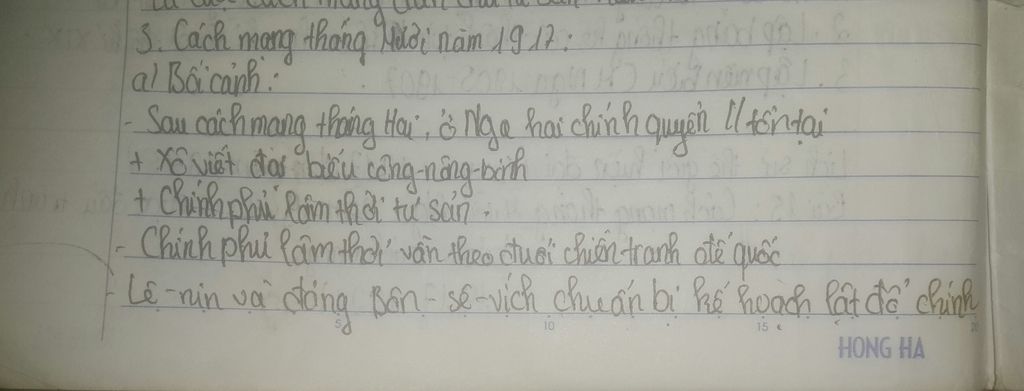 3. Cách mạng tháng Mười năm 1917:
a) Bối cảnh:
- Sau cách mạng tháng Hai, ở Nga hai chính quyền // tồn tại
+ Xô viết đại biểu công-nông-binh
+ Chính phủ lâm thời tư sản.
- Chính phủ lâm thời vẫn theo đuổi chiến tranh đế quốc
- Lê-nin và đảng Bôn-sê-vích chuẩn bị kế hoạch lật đổ chính
5 10 15 20
HONG HA